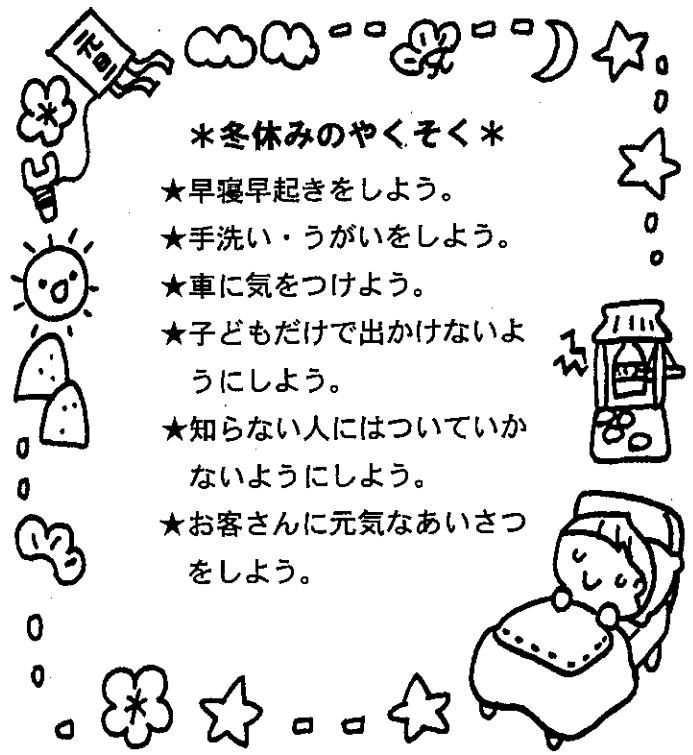 元旦
＊冬休みのやくそく＊
★早寝早起きをしよう。
★手洗い・うがいをしよう。
★車に気をつけよう。
★子どもだけで出かけないよ
うにしよう。
★知らない人にはついていか
ないようにしよう。
★お客さんに元気なあいさつ
をしよう。